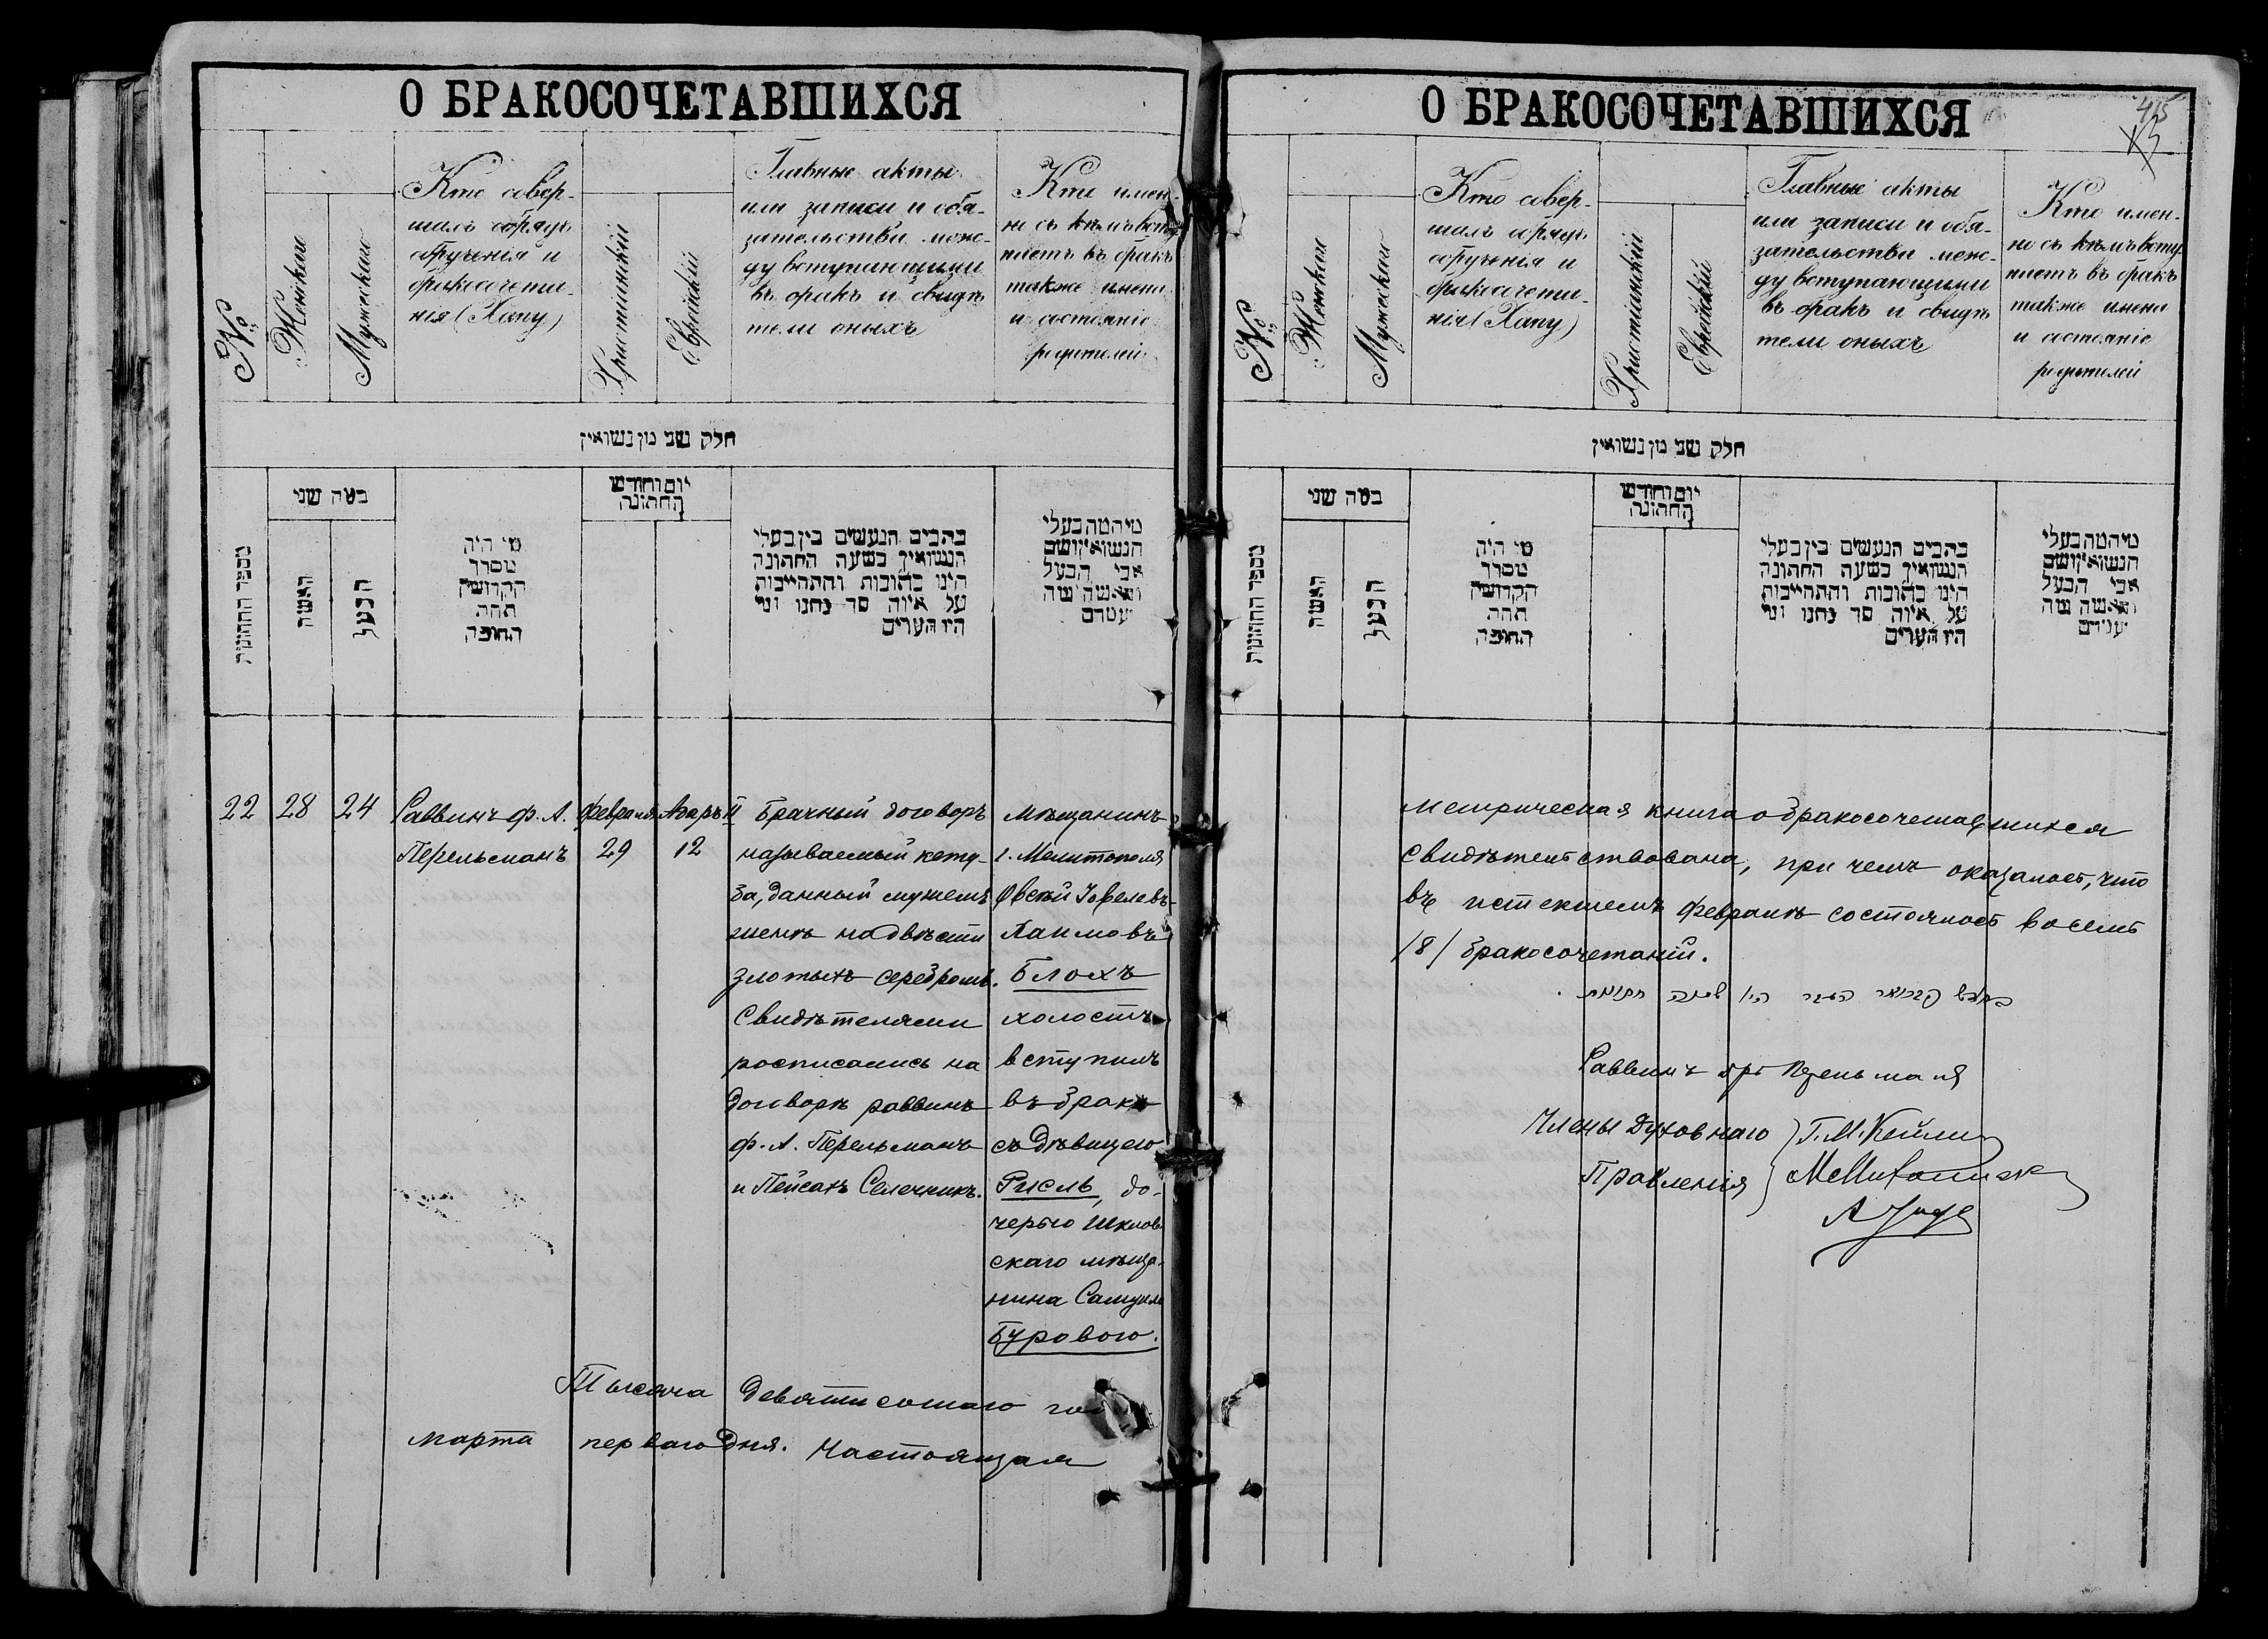 О БРАКОСОЧЕТАВШИХСЯ
№
Женская
Мужская
Кто совер-
шалъ обрядъ
обрученія и
бракосочета-
нія (Хапу)
Христіанскій
Еврейскій
Главные акты
или записи и обя-
зательства меж-
ду вступающими
въ бракъ и свидѣ
тели оныхъ
Кто имен-
но съ кѣмъ всту
паетъ въ бракъ
также имена
и состояніе
родителей
חלק שני מן נשואין
מספר החתונות
כמה שני
האשה
הבעל
מי היה
מסדר
הקדושין
תחת
החופה
יום וחודש
החתונה
כתבים הנעשים בין בעלי
הנשואין בשעה החתונה
הינו כתובות והתחייבות
על איזה סך נתנו ומי
היו העדים
מיהמה בעלי
הנשואין ושם
אבי הבעל
והאשה ומה
עמדם
22
28
24
Раввинъ Ф. А.
Перельманъ
Февраля
29
Адаръ II
12
Брачный договоръ
называемый кету-
ба, данный мужемъ
женѣ на двѣсти
злотыхъ серебромъ.
Свидѣтелями
росписались на
договорѣ раввинъ
Ф. А. Перельманъ
и Пейсахъ Селечникъ.
Мѣщанинъ
г. Мелитополя
Овсей Іовелевъ-
Хаимовъ
Блохъ
холостъ
вступилъ
въ бракъ
съ дѣвицею
Рисль, до-
черью Шклов
скаго мѣща-
нина Самуила
Бурового.
Тысяча девятисотаго го
марта перваго дня. Настоящая
О БРАКОСОЧЕТАВШИХСЯ
45
№
Женская
Мужская
Кто совер-
шалъ обрядъ
обрученія и
бракосочета-
нія (Хапу)
Христіанскій
Еврейскій
Главные акты
или записи и обя-
зательства меж-
ду вступающими
въ бракъ и свидѣ
тели оныхъ
Кто имен-
но съ кѣмъ всту
паетъ въ бракъ
также имена
и состояніе
родителей
חלק שני מן נשואין
מספר החתונות
כמה שני
האשה
הבעל
מי היה
מסדר
הקדושין
תחת
החופה
יום וחודש
החתונה
כתבים הנעשים בין בעלי
הנשואין בשעה החתונה
הינו כתובות והתחייבות
על איזה סך נתנו ומי
היו העדים
מיהמה בעלי
הנשואין ושם
אבי הבעל
והאשה ומה
עמדם
метрическая книга о бракосочетавшихся
свидѣтельствована, при чемъ оказалось, что
въ истекшемъ февралѣ состоялось восемь
/8/ бракосочетаній.
בחדש פברואר העבר היו שמנה חתונות
Раввинъ Перельманъ
Члены Духовнаго
Правленія
Г. М. Кейлин